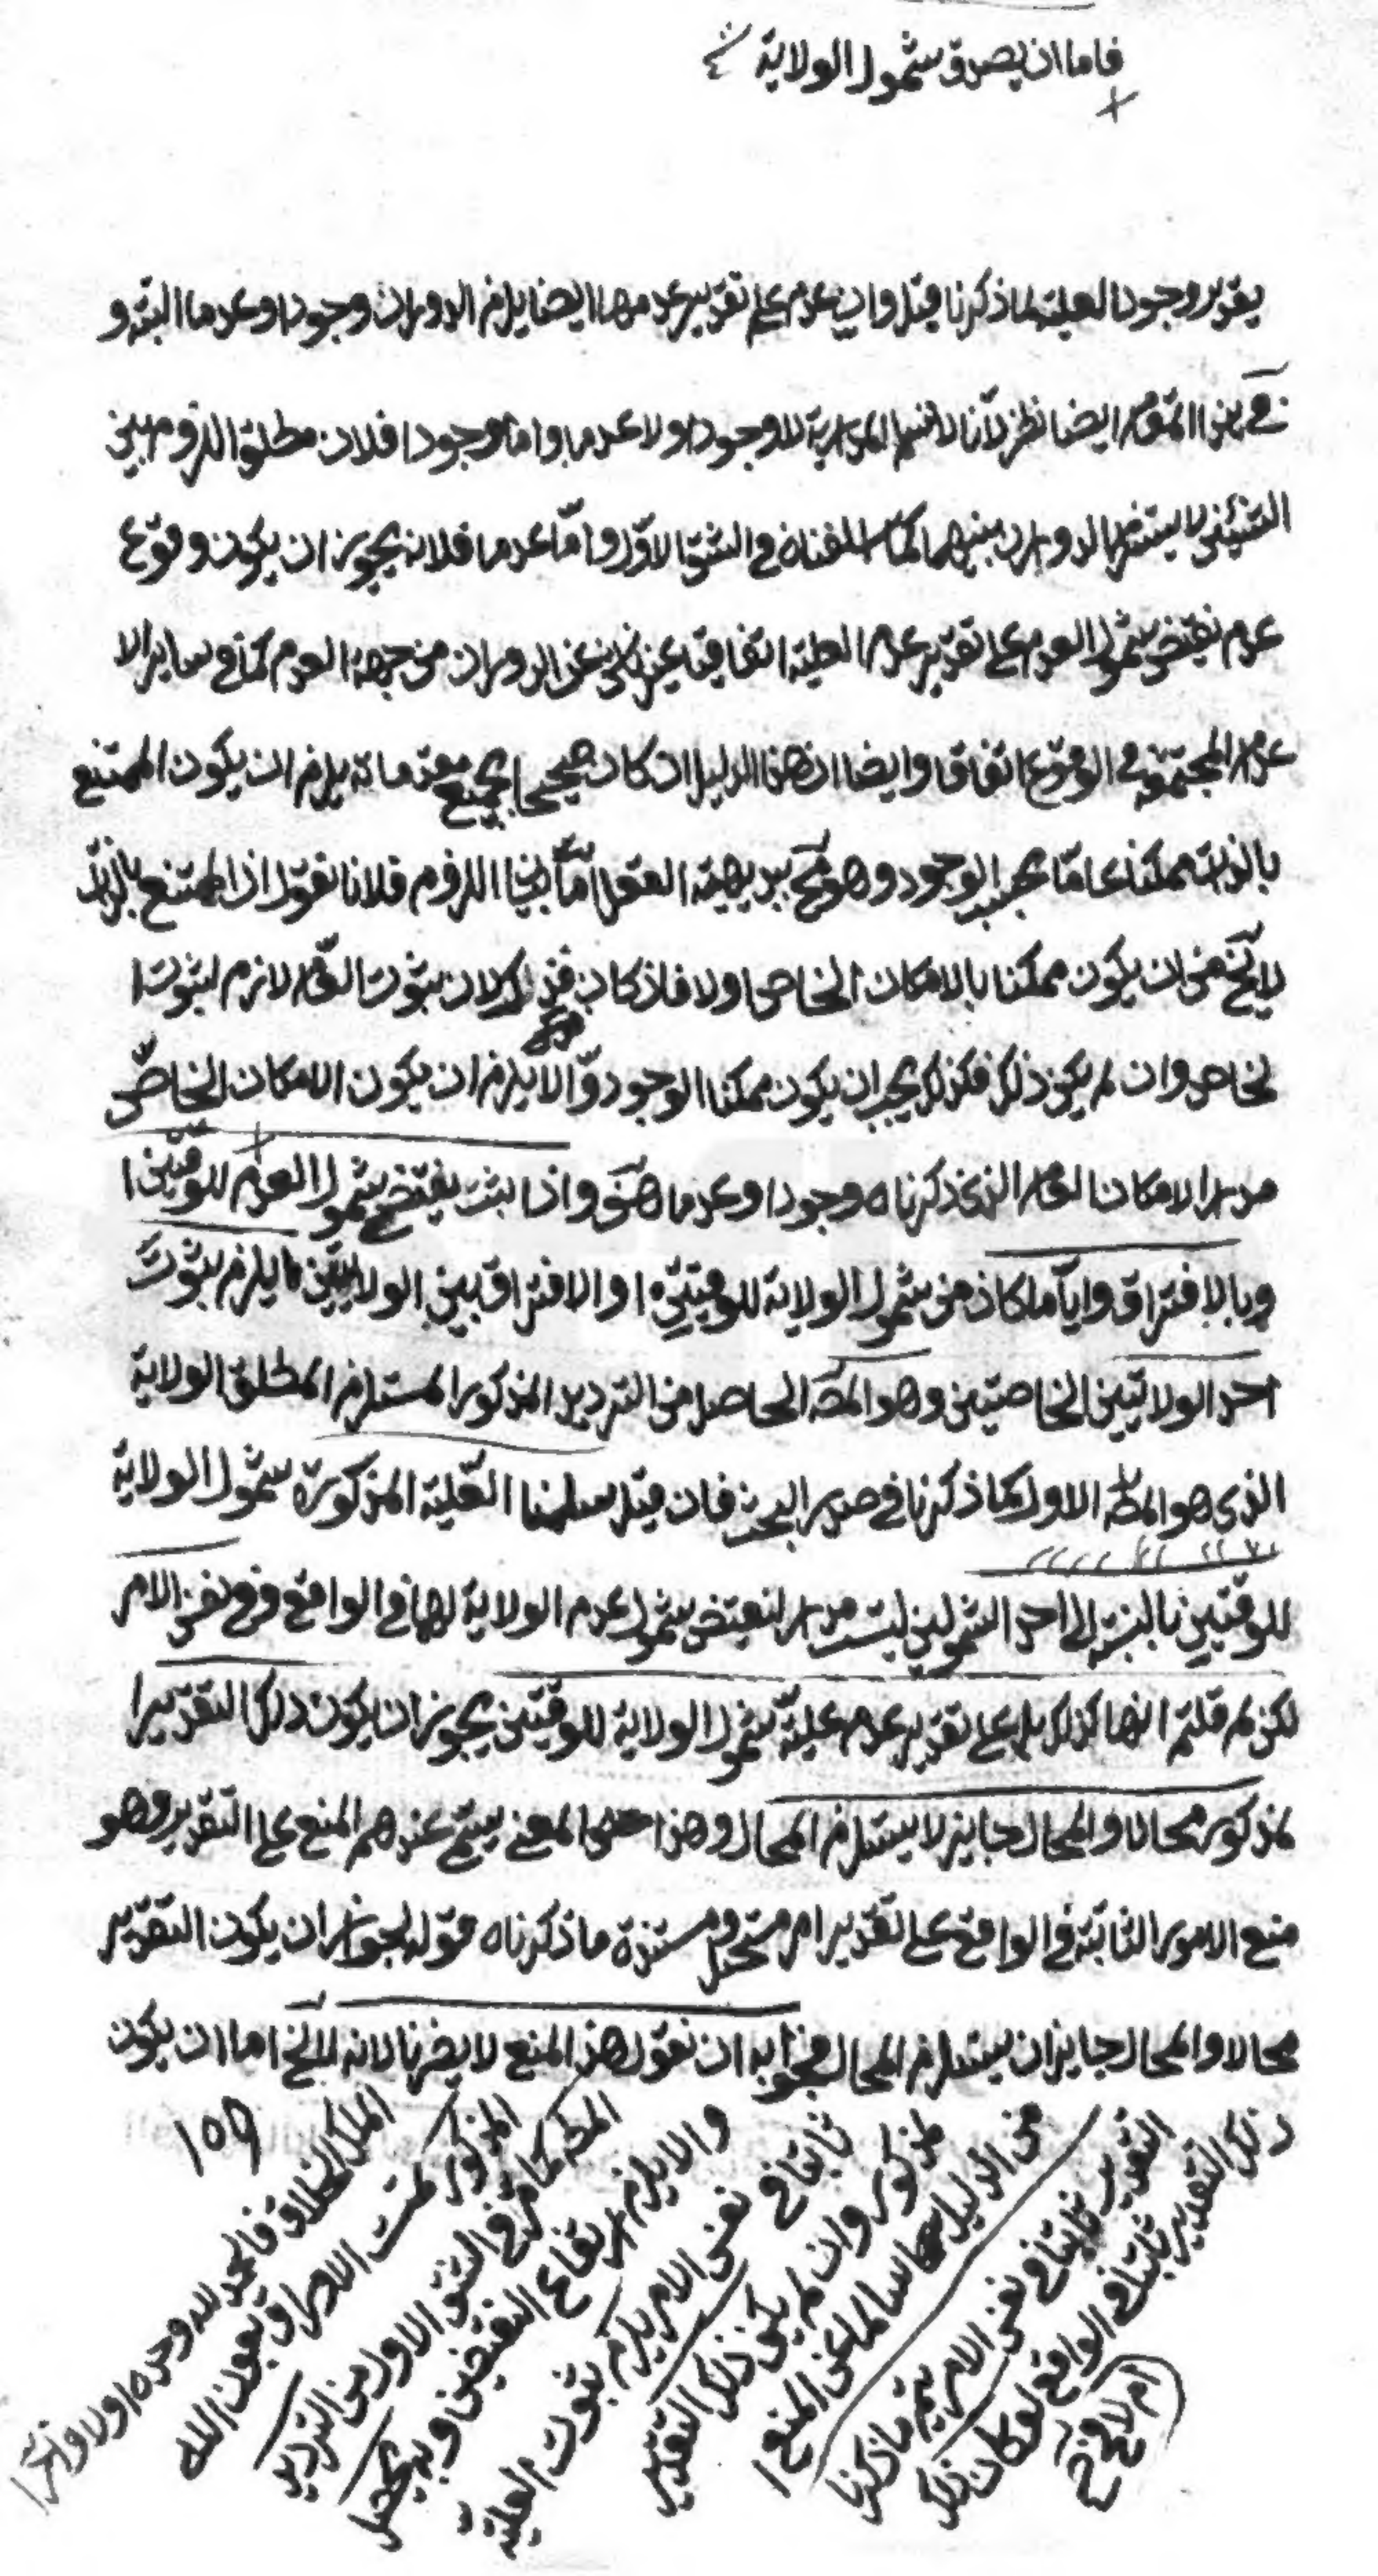 فاما ان يصدق شمول الولاية
بتقدير وجود العلية لما ذكرنا قبل وان عدم على تقدير عدمها ايضا يلزم الدوران وجودا وعدما البتة و
في هذا المقام ايضا نظر لانا لا نسلم المدارية لا وجودا ولا عدما واما وجودا فلان مطلق اللزوم بين
الشيئين لا يستلزم الدوران بينهما كما اسلفناه في الشق الاول واما عدما فلانه يجوز ان يكون وقوع
عدم نقيض شمول العدم على تقدير عدم العلية اتفاقيا غير ناش عن الدوران من جهة العدم كما في ساير الا
عدام المجتمعة في الوقوع اتفاقا وايضا ان هذا الدليل ان كان صحيحا بجميع مقدماته يلزم ان يكون الممتنع
بالذات ممكنا عاما بحسب الوجود وهو مح ببديهة العقل اما بيان اللزوم فلانا نقول ان الممتنع بالذات
لايخ من ان يكون ممكنا بالامكان الخاص او لا فان كان فذلك لان ثبوت العام لازم لثبوت ا
لخاص وان لم يكن ذلك فكذلك يجب ان يكون ممكنا الوجود والا يلزم ان يكون الامكان الخاص
مدار الامكان العام الذي ذكرناه وجودا وعدما هف واذا ثبت نقيض شمول العدم للوقتين ا
وبالافتراق وايا ما كان من شمول الولاية للوقتين او الافتراق بين الولايتين يلزم ثبوت
احد الولايتين الخاصتين وهو المط الحاصل من الترديد المذكور المستلزم المطلق الولاية
الذي هو المط الاول كما ذكرنا في صدر البحث فان قيل سلمنا العلية المذكورة شمول الولاية
للوقتين بالنسبة الى احد الشمولين ليست مدار لنقيض شمول عدم الولاية لهما في الواقع وفي نفس الامر
لكن لم قلتم انها كذلك على تقدير عدم علية شمول الولاية للوقتين يجوز ان يكون ذلك التقدير ا
لمذكور محالا والمحال جايز لا يستلزم المحال وهذا المعنى يسمى عندهم المنع على التقدير وهو
منع الامور الثابتة في الواقع على تقدير امر مستحيل ومستنده ما ذكرناه قوله لجواز ان يكون التقدير
محالا والمحال جايز ان يستلزم المحال فجوابه ان نقول هذا المنع لا يضرنا لانه لايخ اما ان يكون
ذلك التقدير ثابتا في الواقع لو كان ذلك
ام لا وح
التقدير ثابتا في نفس الامر يتم ما ذكرنا
من الدليل سالما عن المنع ا
لمذكور وان لم يكن ذلك التقدير
ثابتا في نفس الامر يلزم ثبوت العلية
والا يلزم ارتفاع النقيضين وبه يحصل
المط كما مر في الشق الاول من الترديد
المذكور تمت الاوراق بعون الله
الملك الخلاق فالحمد لله وحده اولا واخرا
١٥٩